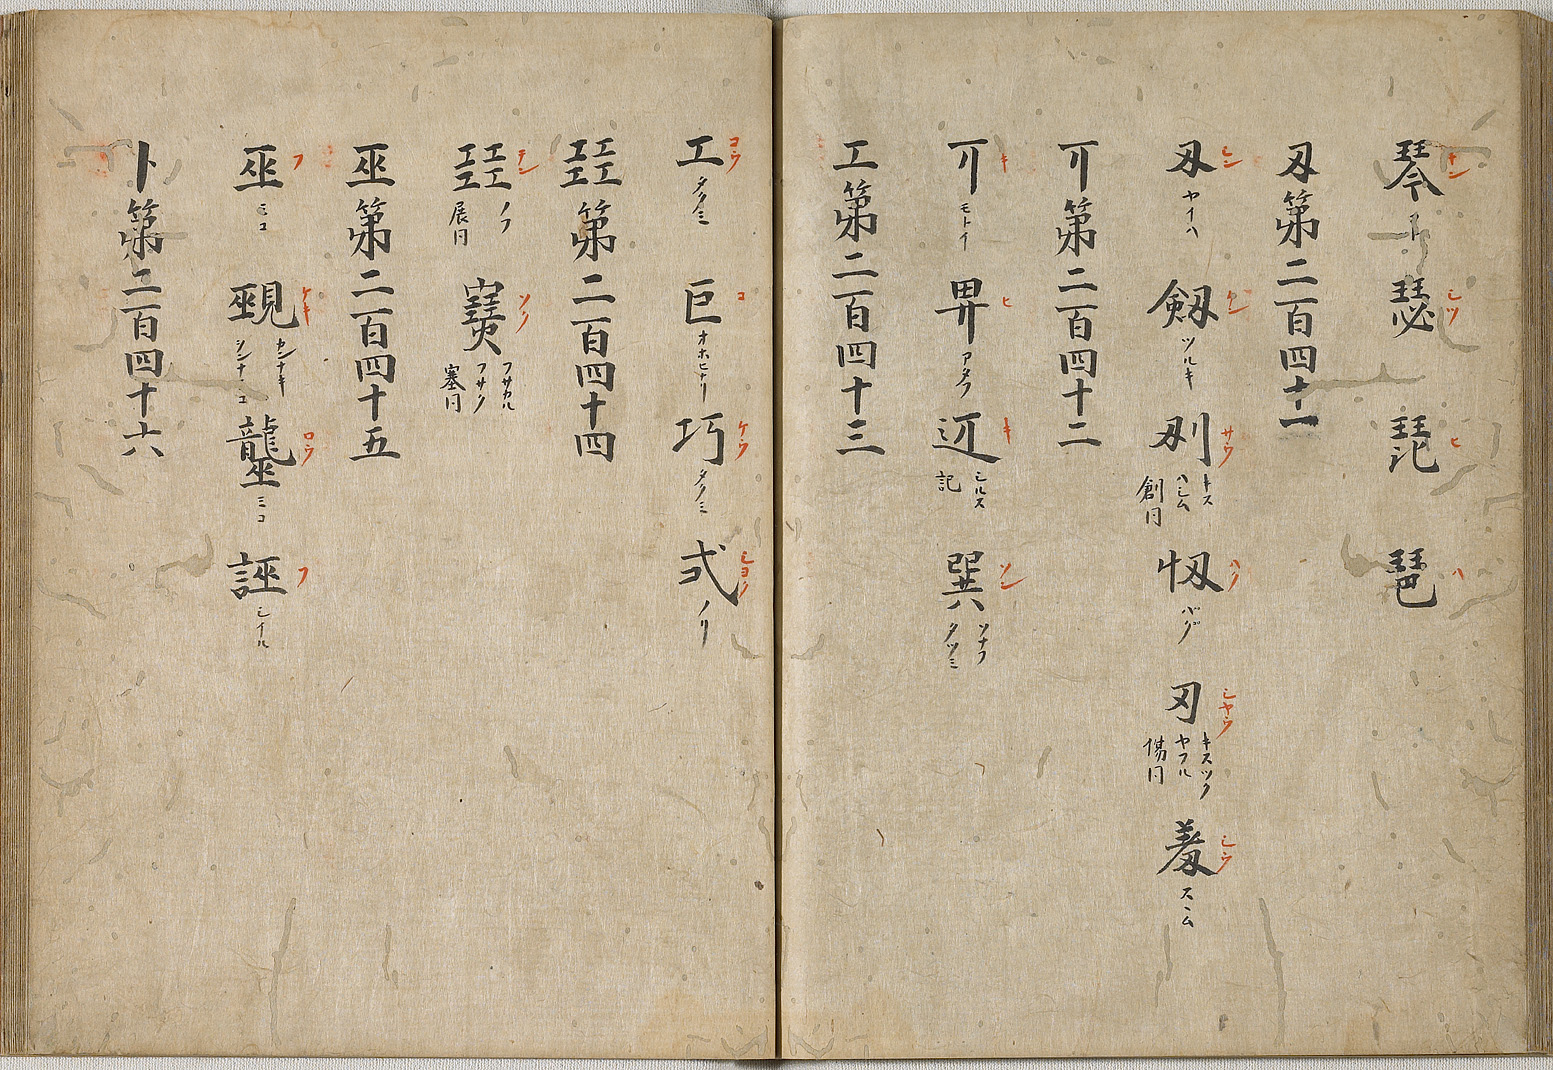 琴 キン コト 瑟 シツ 琵 ヒ 琶 ハ
刄第二百四十一
刄 シン ヤイハ 劔 ケン ツルキ 刅 サウ キス ハシム 創同 㣼 ハク ハグ 刃 シヤウ キスツク ヤフル 傷同 羞 シウ スヽム
丌第二百四十二
丌 キ モトイ 畀 ヒ アタフ 迊 キ シルス 記 巽 ソン ツナフ タツミ
工第二百四十三
工 コウ タクミ 巨 コ オホヒナリ 巧 ケウ タクミ 式 シヨク ノリ
㠭第二百四十四
㠭 テン ノフ 展同 ソク フサカル フサク 塞同
巫第二百四十五
巫 フ ミコ 覡 ケキ カンナキ ミコ ロウ ミコ 誣 フ シイル
卜第二百四十六